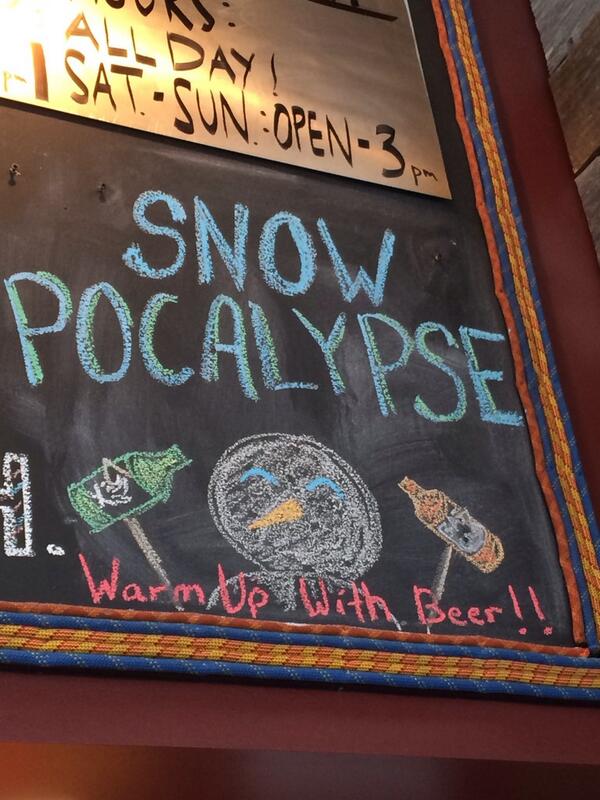 HOURS:
ALL DAY!
SAT.-SUN.:OPEN-3pm
SNOW
POCALYPSE
Warm Up With Beer!!